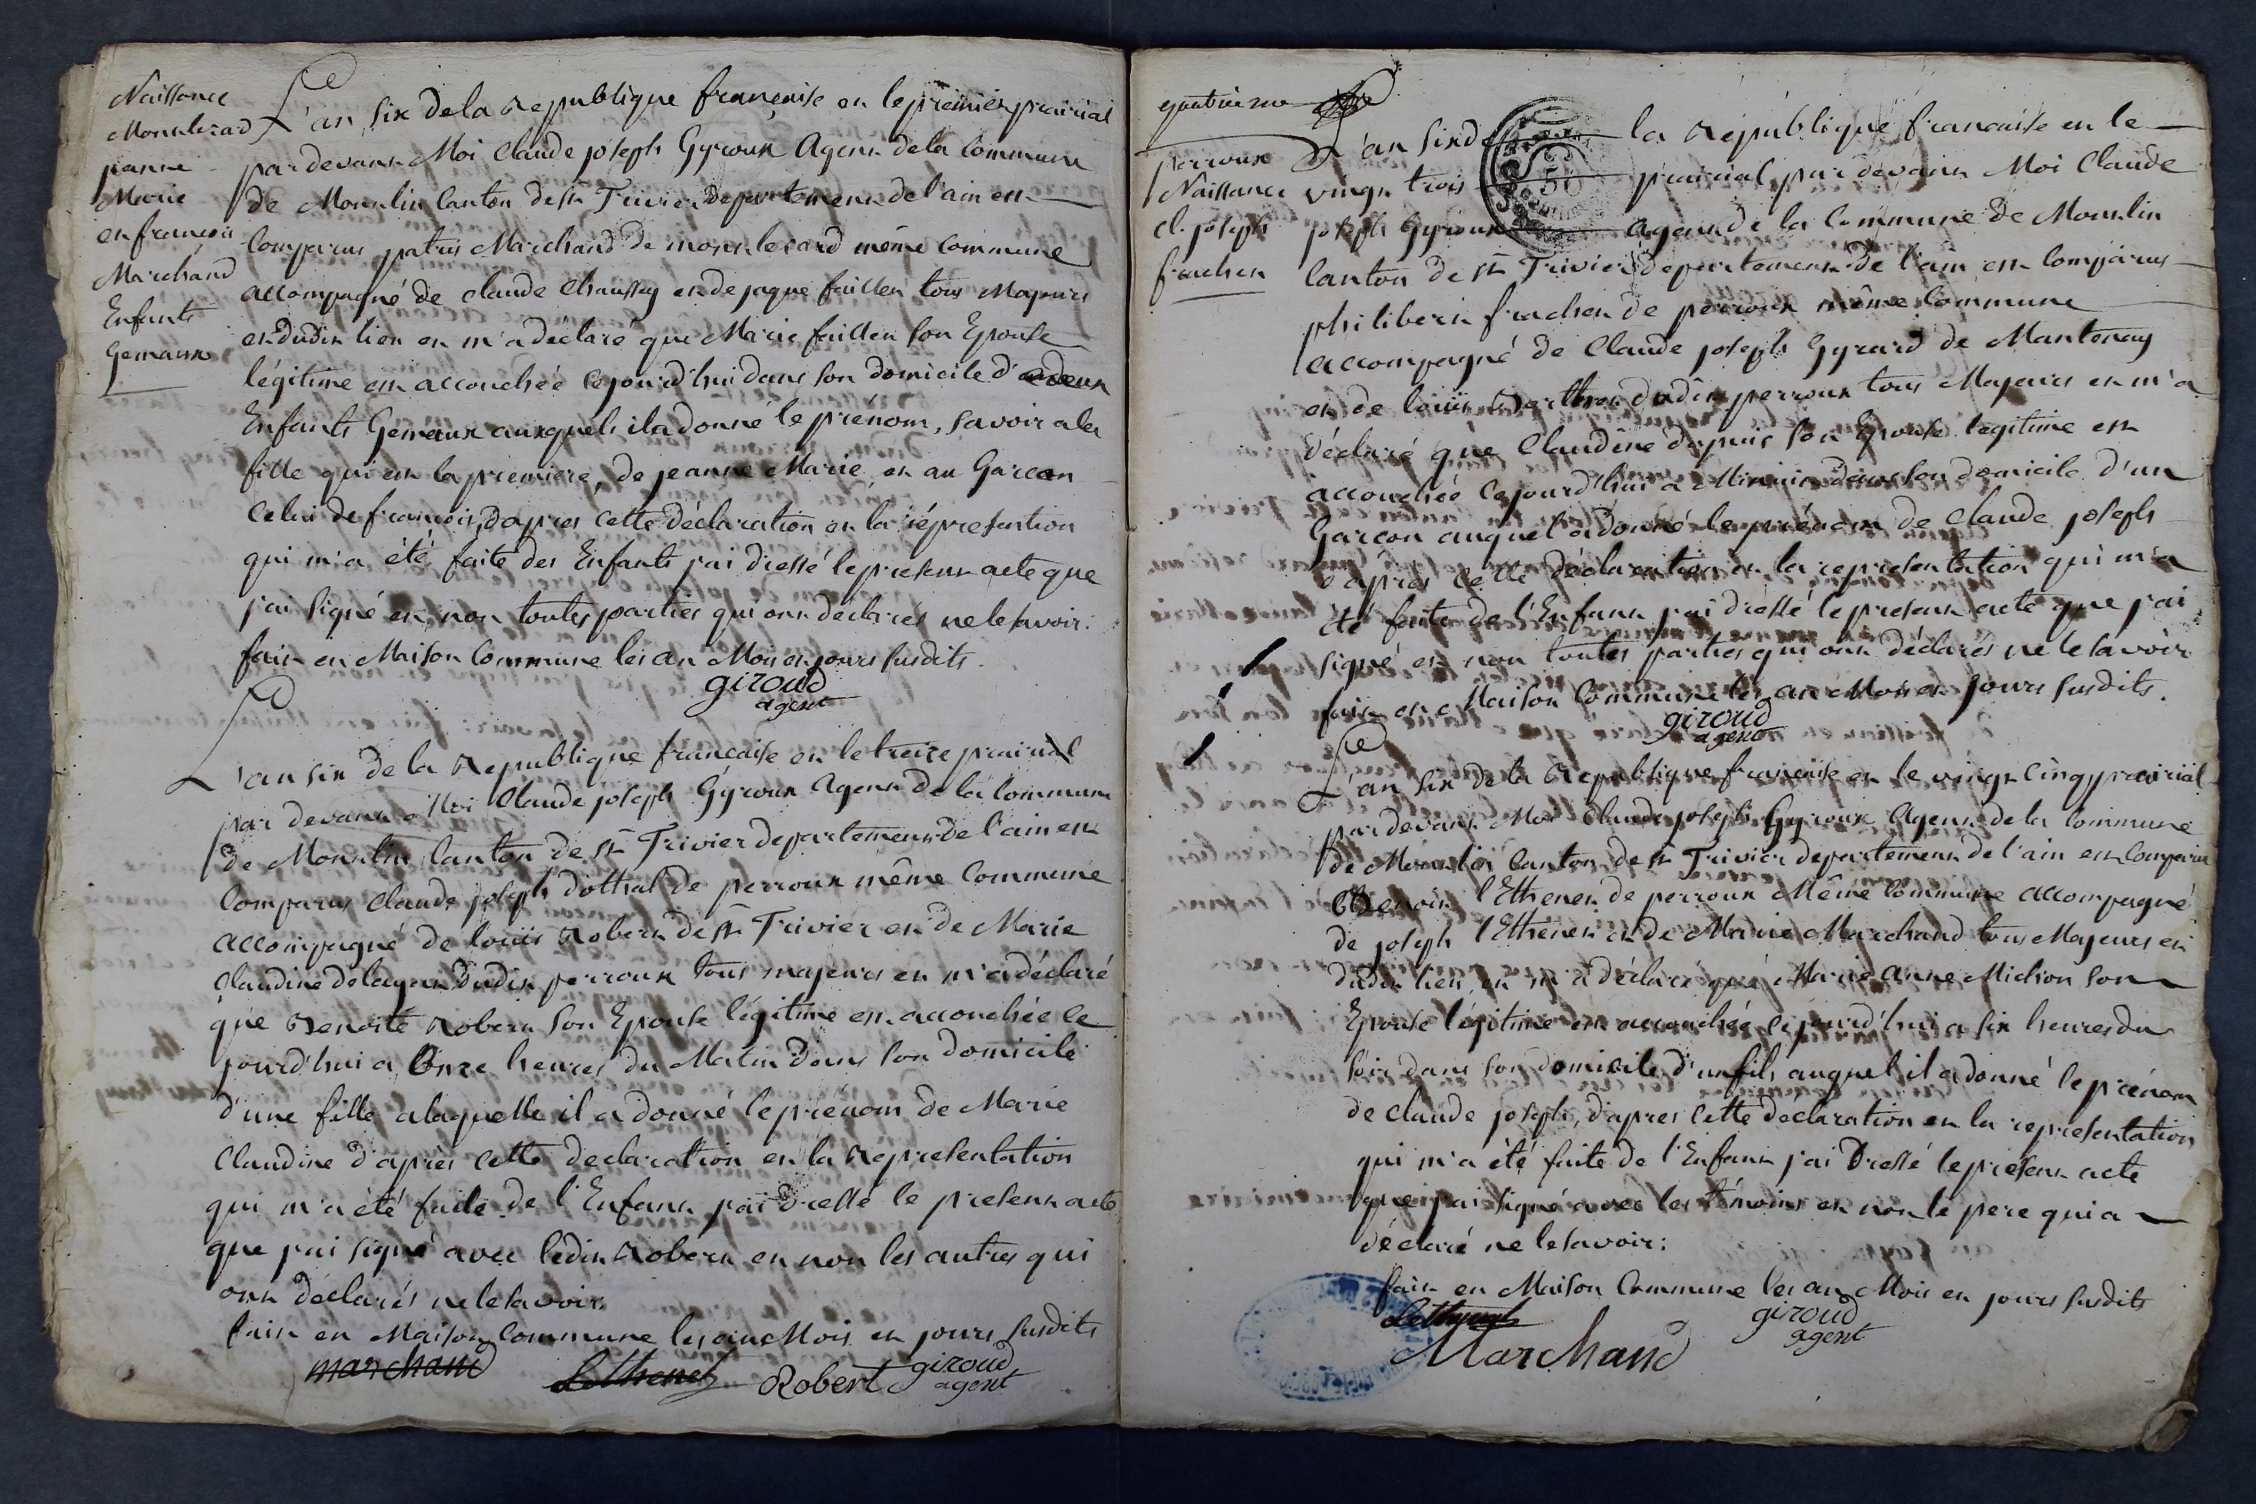 Naissance
Montlezard
jeanne
Marie
et françois
Marchand
Enfants
Gemaux
L'an six de la Republique francaise et le premier prairial
par devant Moi Claude joseph Gyroux Agent de la Commune
de Montlin Canton de st Trivier Departement de l'ain est
Comparus Marchand de montlezard même Commune
accompagné de Claude Chaussey et de jaque faillet tous Majeurs
et dudit lieu et m'a déclaré que Marie faillet son Epouse
légitime est accouchée cejourd'hui dans son domicile d' deux
Enfants Gemaux auxquels il a donné le prénom, savoir a la
fille qui est la premiere, de jeanne Marie, et au Garcon
Celui de francois, dapres cette déclaration et la réprésentation
qui m'a été faite des Enfants j'ai dressé le present acte que
j'ai signé et non toutes parties qui ont declarés ne le savoir.
fait en Maison Commune les an Mois et jours susdits.
giroud
agent
L'an six de la Republique francaise et le treize prairial
par devant Moi Claude joseph Gyroux Agent de la Commune
de Montlin Canton de st Trivier departement de l'ain est
Comparus Claude joseph dothal de perroux même Commune
accompagné de louis Robert de st Trivier et de Marie
Claudine délayat dudit perroux tous majeurs et m'a déclaré
que Benoite Robert son Epouse légitime est accouchée ce
jourd'hui a Onze heures du Matin dans son domicile
d'une fille a laquelle il a donné le prénom de Marie
Claudine d'apres cette declaration et la Representation
qui m'a été faite de l'Enfant j'ai Dressé le present acte
que j'ai signé avec ledit Robert et non les autres qui
ont déclarés ne le savoir.
fait en Maison Commune les an Mois et jours susdits
marchand Lethenet Robert giroud
agent
quatrieme
perroux
Naissance
cl. joseph
frachet
L'an six de la République francaise et le
vingt trois prairial par devant Moi Claude
joseph Gyroux agent de la Commune de Montlin
Canton de st Trivier departement de l'ain est Comparus
philibert frachet de perroux même Commune
accompagné de Claude joseph Gyrard de Mantenay
et de louis Berthod dudit perroux tous Majeurs et m'a
déclaré que Claudine dupuis son Epouse legitime est
accouchée cejourd'hui a Minuit dans son domicile d'un
Garcon auquel a donné le prénom de Claude joseph
d'après cette déclaration et la representation qui m'a
été faite de l'Enfant j'ai dréssé le present acte que j'ai
signé et non toutes parties qui ont déclarés ne le savoir
fait en Maison Commune les an Mois et jours susdits.
giroud
agent
L'an six de la Republique francaise et le vingt cinq prairial
par devant Moi Claude joseph Gyroux Agent de la Commune
de Montlin Canton de st Trivier departement de l'ain est Comparu
Benoit l'Ethenet de perroux Même Commune accompagné
de joseph l'Ethenet et de Marie Marchand tous Majeurs et
dudit lieu, et m'a déclaré que Marie anne Michon son
Epouse légitime est accouchée cejourd'hui a six heures du
soir dans son domicile d'un fils auquel il a donné le prénom
de Claude joseph, d'apres cette déclaration et la representation
qui m'a été faite de l'Enfant j'ai Dressé le present acte
que j'ai signé avec les témoins et non le pere qui a
déclaré ne le savoir:
fait en Maison Commune les an Mois et jours susdits
giroud
agent
Marchand